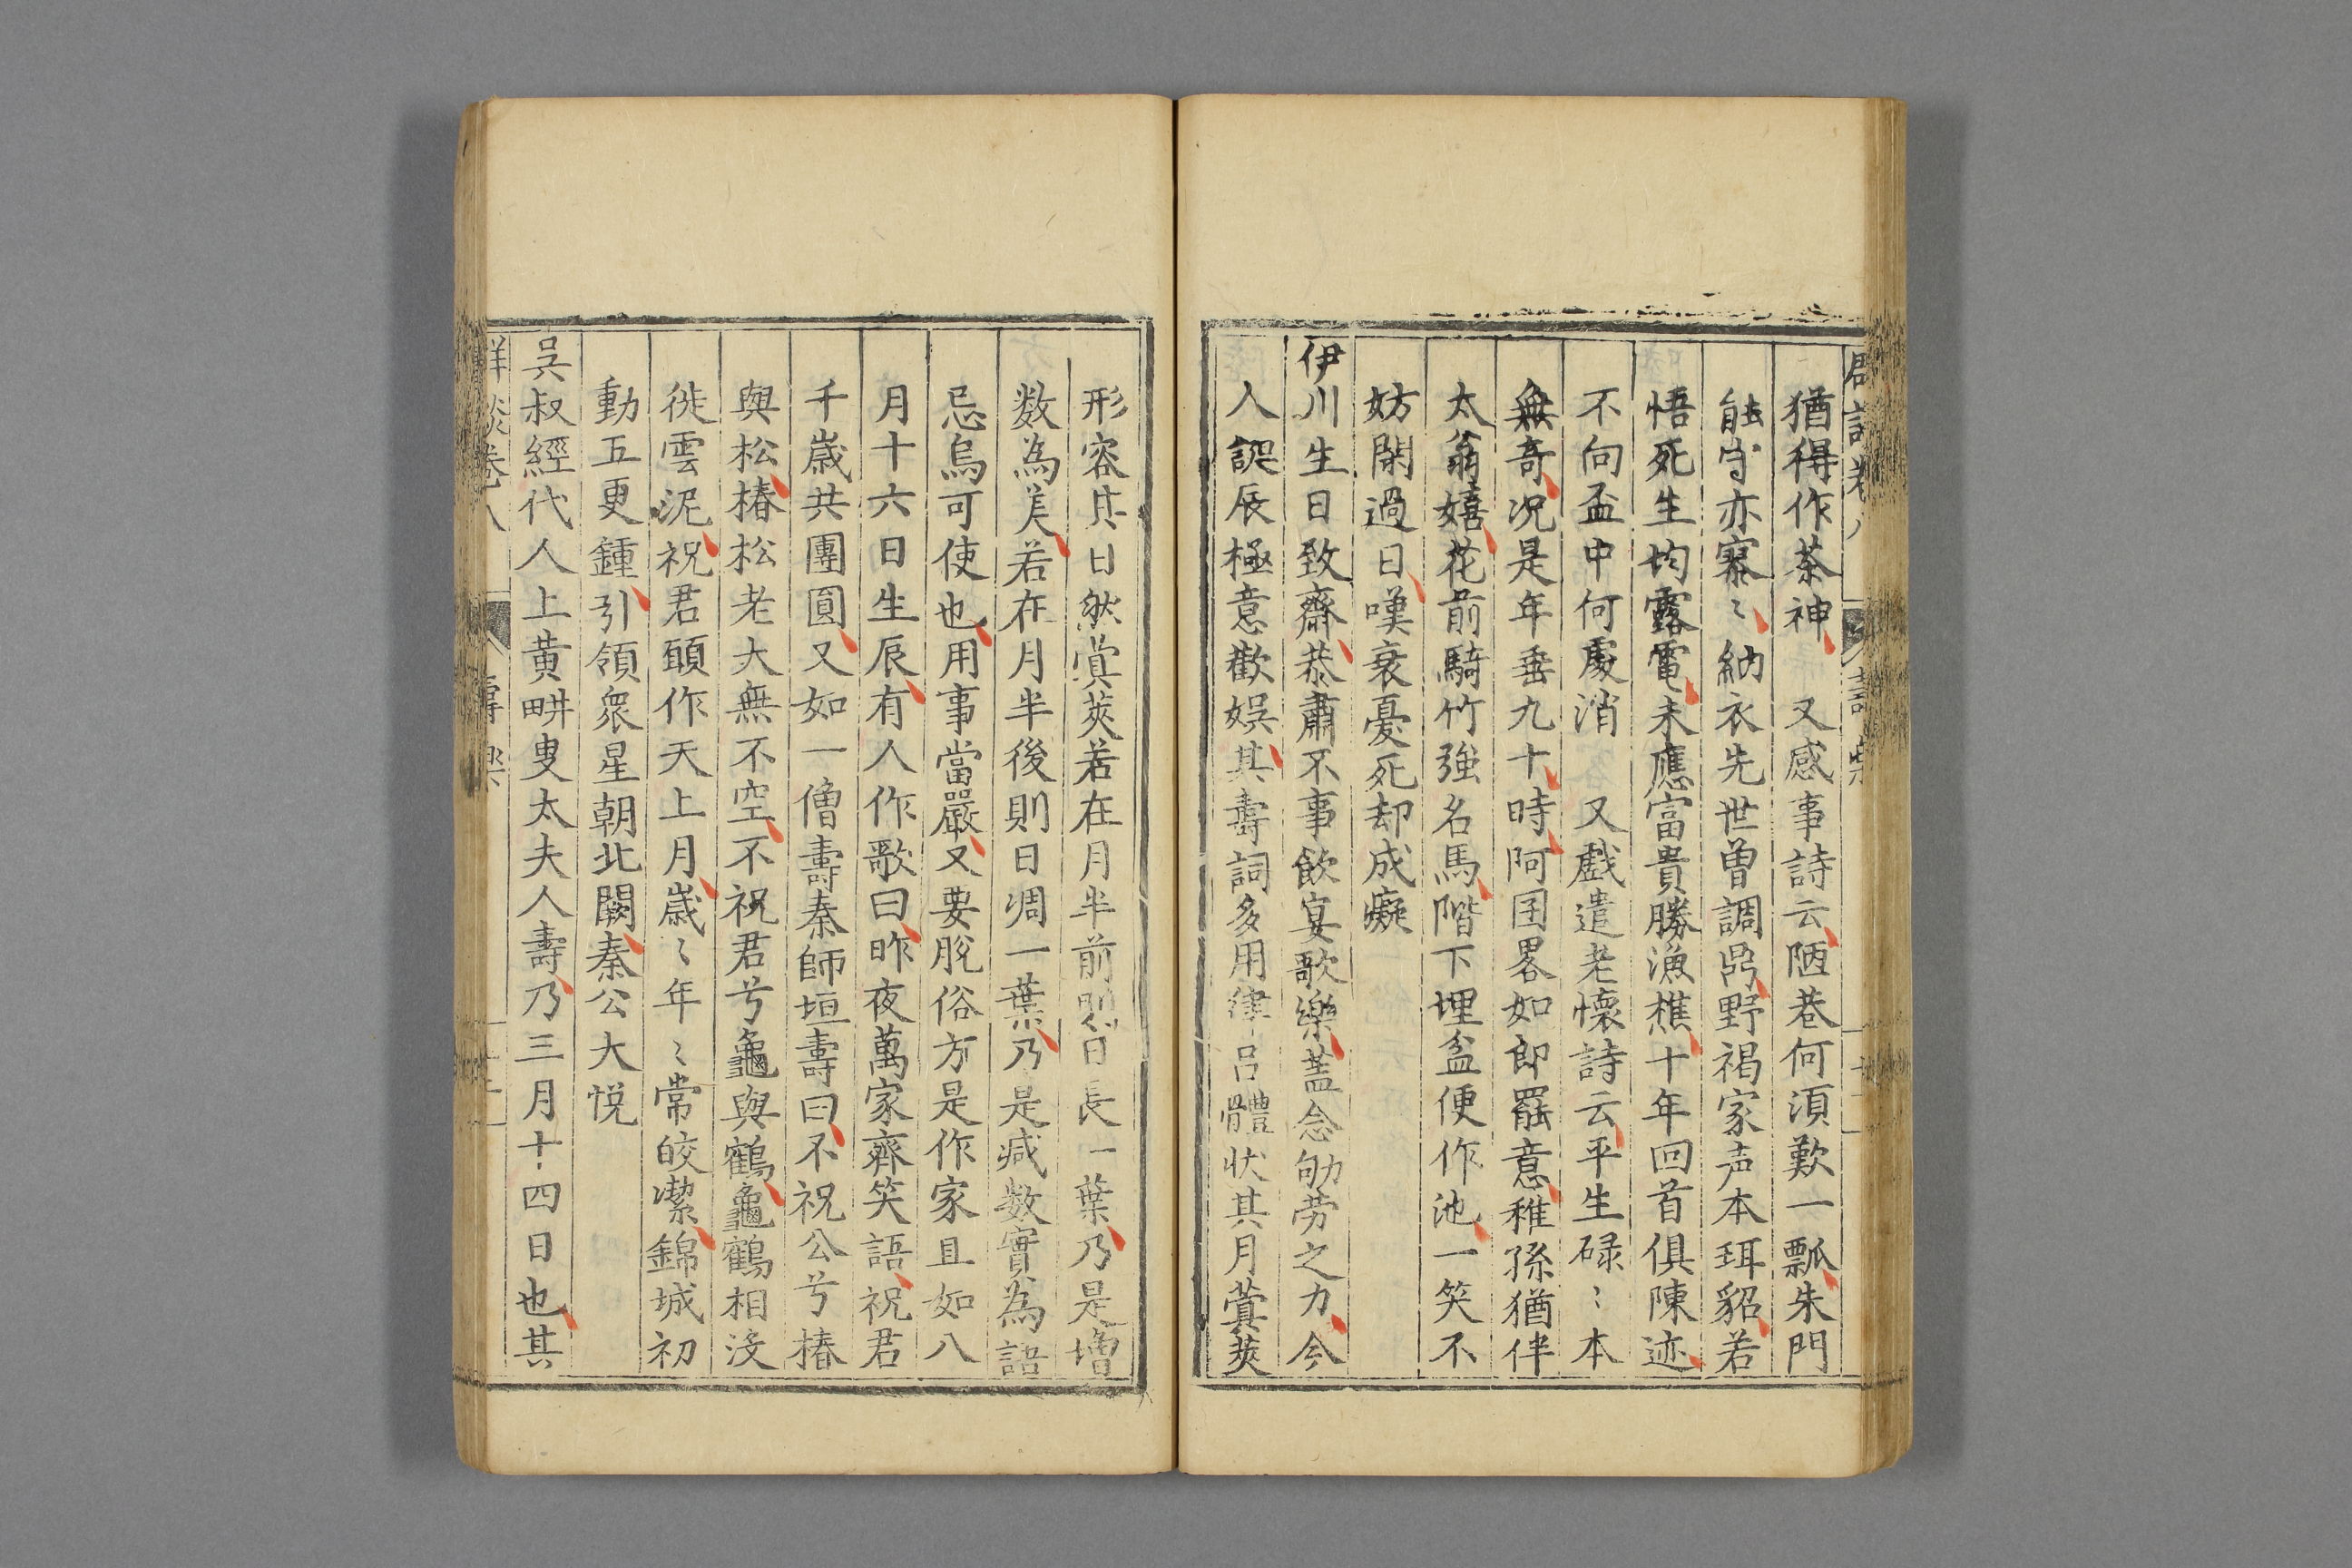 猶得作荼神　又感事詩云陋巷何湏歎一瓢朱門
能守亦寥〻納衣先世曽調鼎野褐家声本珥貂若
悟死生均露電未應冨貴勝漁樵十年回首俱陳迹
不向盃中何處消　又戲遣老懷詩云平生碌〻本
無竒况是年垂九十時阿囝畧如郎罷意稚孫猶伴
太翁嬉花前騎竹強名馬階下埋盆便作池一笑不
妨閑過日嘆衰憂死却成癡
伊川生日致齋恭肅不事飲宴歌樂蓋念劬劳之力今
人誤辰極意歡娯其壽詞多用律吕體状其月蓂莢
形容其日然蓂莢若在月半前則日長一葉乃是增
数為美若在月半後則日凋一葉乃是减数實為語
忌烏可使也用事當嚴又要脱俗方是作家且如八
月十六日生辰有人作歌曰昨夜萬家齊笑語祝君
千歳共團圓又如一僧壽秦師垣壽曰不祝公兮椿
與松椿松老大無不空不祝君兮龜與鶴龜鶴相没
徙雲泥祝君頭作天上月歳〻年〻常皎潔錦城初
動五更鍾引領衆星朝北闕秦公大悦
吳叔經代人上黄畊叟太夫人壽乃三月十四日也其